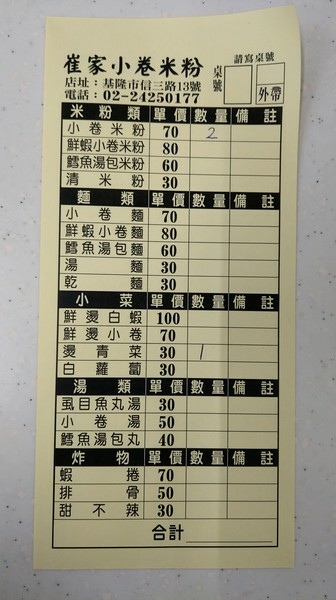 崔家小卷米粉
請寫桌號
桌號
外帶
店址：基隆市信三路13號
電話：02-24250177
米粉類 單價 數量 備註
小卷米粉 70 2
鮮蝦小卷米粉 80
鱈魚湯包米粉 60
清米粉 30
麵類 單價 數量 備註
小卷麵 70
鮮蝦小卷麵 80
鱈魚湯包麵 60
湯麵 30
乾麵 30
小菜 單價 數量 備註
鮮燙白蝦 100
鮮燙小卷 70
燙青菜 30 1
白蘿蔔 30
湯類 單價 數量 備註
虱目魚丸湯 30
小卷湯 50
鱈魚湯包丸 40
炸物 單價 數量 備註
蝦捲 70
排骨 50
甜不辣 30
合計